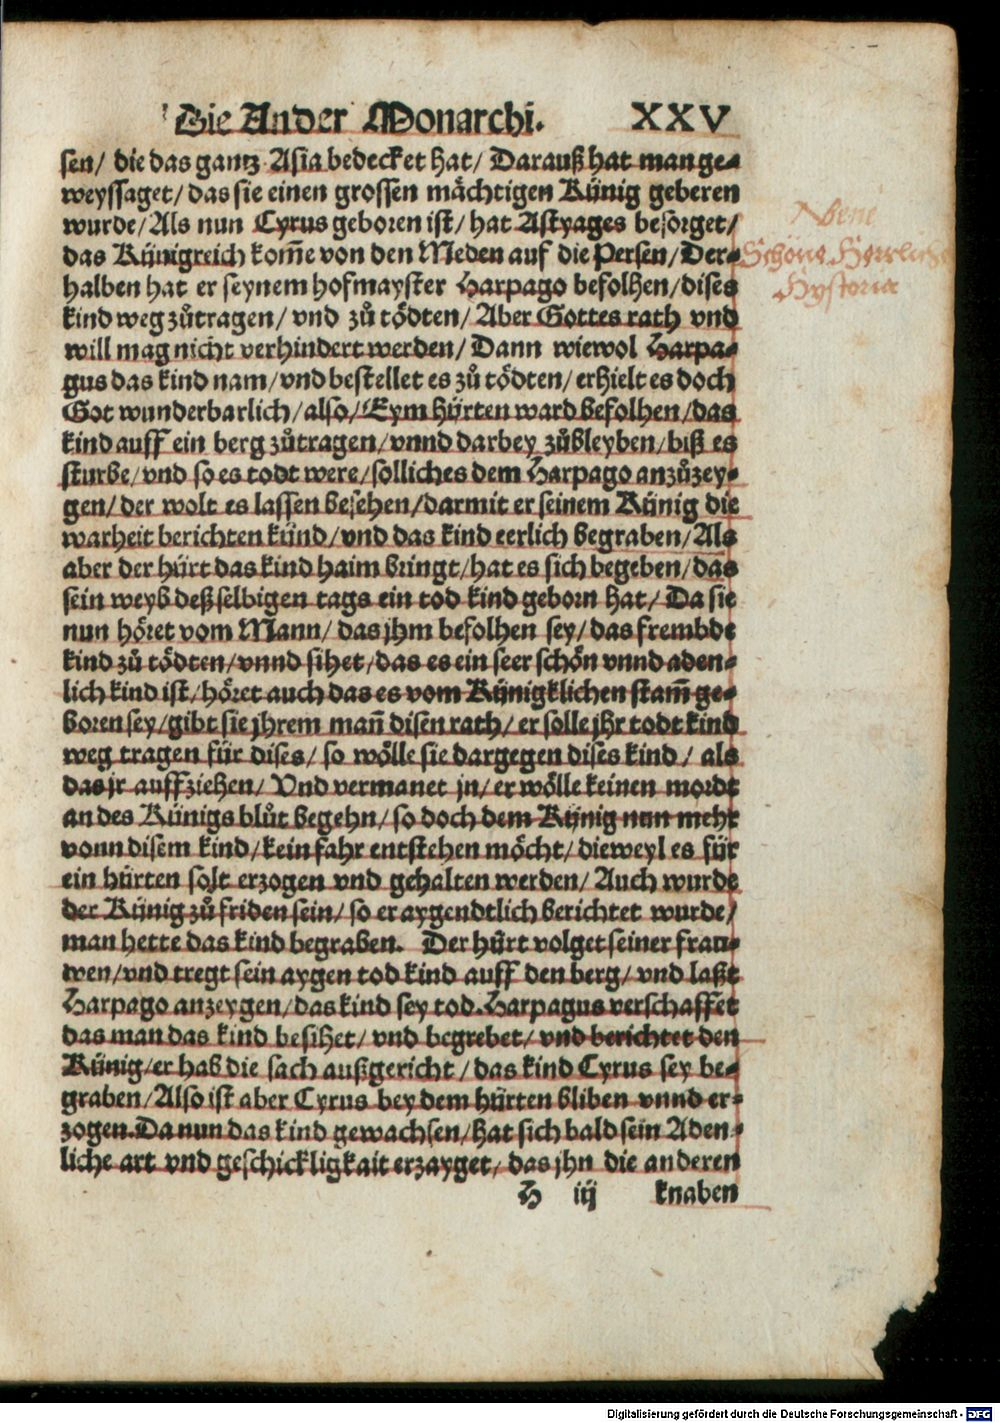 Die Ander Monarchi. XXV
sen/ die das gantz Asia bedecket hat/ Darauß hat man ge⸗
weyssaget/ das sie einen grossen mächtigen Künig geberen
wurde/ Als nun Cyrus geboren ist/ hat Astyages besorget/
das Künigreich kom̃e von den Meden auf die Persen/ Der⸗
halben hat er seynem hofmayster Harpago befolhen/ dises
kind weg zůtragen/ vnd zů tödten/ Aber Gottes rath vnd
will mag nicht verhindert werden/ Dann wiewol Harpa⸗
gus das kind nam/ vnd bestellet es zů tödten/ erhielt es doch
Got wunderbarlich/ also/ Eym hürten ward befolhen/ das
kind auff ein berg zůtragen/ vnnd darbey zůbleyben/ biß es
sturbe/ vnd so es todt were/ solliches dem Harpago anzůzey⸗
gen/ der wolt es lassen besehen/ darmit er seinem Künig die
warheit berichten künd/ vnd das kind eerlich begraben/ Als
aber der hürt das kind haim bringt/ hat es sich begeben/ das
sein weyb deßselbigen tags ein tod kind geborn hat/ Da sie
nun höret vom Mann/ das jhm befolhen sey/ das frembde
kind zů tödten/ vnnd sihet/ das es ein seer schön vnnd aden⸗
lich kind ist/ höret auch das es vom Künigklichen stam̃ ge⸗
boren sey/ gibt sie jhrem man̄ disen rath/ er solle jhr todt kind
weg tragen für dises/ so wölle sie dargegen dises kind/ als
das jr auffziehen/ Vnd vermanet jn/ er wölle keinen mordt
an des Künigs blůt begehn/ so doch dem Künig nun mehr
vonn disem kind/ kein fahr entstehen möcht/ dieweyl es für
ein hürten solt erzogen vnd gehalten werden/ Auch wurde
der Künig zů friden sein/ so er aygendtlich berichtet wurde/
man hette das kind begraben. Der hürt volget seiner frau⸗
wen/ vnd tregt sein aygen tod kind auff den berg/ vnd laßt
Harpago anzeygen/ das kind sey tod. Harpagus verschaffet
das man das kind besihet/ vnd begrebet/ vnd berichtet den
Künig/ er hab die sach außgericht/ das kind Cyrus sey be⸗
graben/ Also ist aber Cyrus bey dem hürten bliben vnnd er⸗
zogen. Da nun das kind gewachsen/ hat sich bald sein Aden⸗
liche art vnd geschickligkait erzayget/ das jhn die anderen
H iij knaben
Nbene
Schöne Herrliche
Hystoria
Digitalisierung gefördert durch die Deutsche Forschungsgemeinschaft - DFG